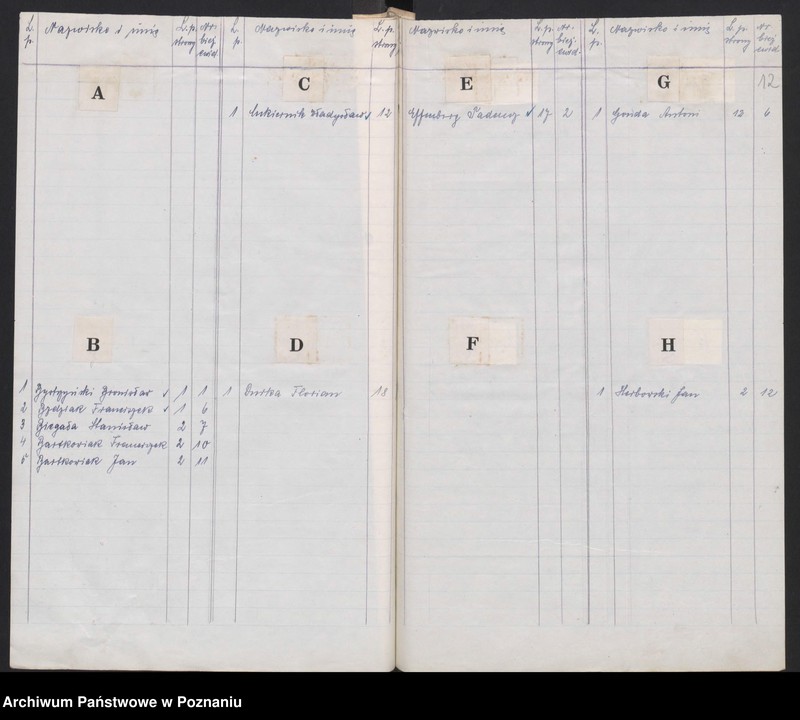 L. p. Nazwisko i imię L. p. strony Nr. bież. ewid.
A
B
1 Bronisław 1 1
2 Franciszek 1 6
3 Stanisław 2 7
4 Bartkowiak Franciszek 2 10
5 Bartkowiak Jan 2 11
L. p. Nazwisko i imię L. p. strony
C
1 Cukiernik Władysław 12
D
1 Florian 18
Nazwisko i imię L. p. strony Nr. bież. ewid.
E
Effenberg Tadeusz 17 2
F
L. p. Nazwisko i imię L. p. strony Nr. bież. ewid.
12
G
1 Antoni 12 6
H
1 Jan 2 12
Archiwum Państwowe w Poznaniu